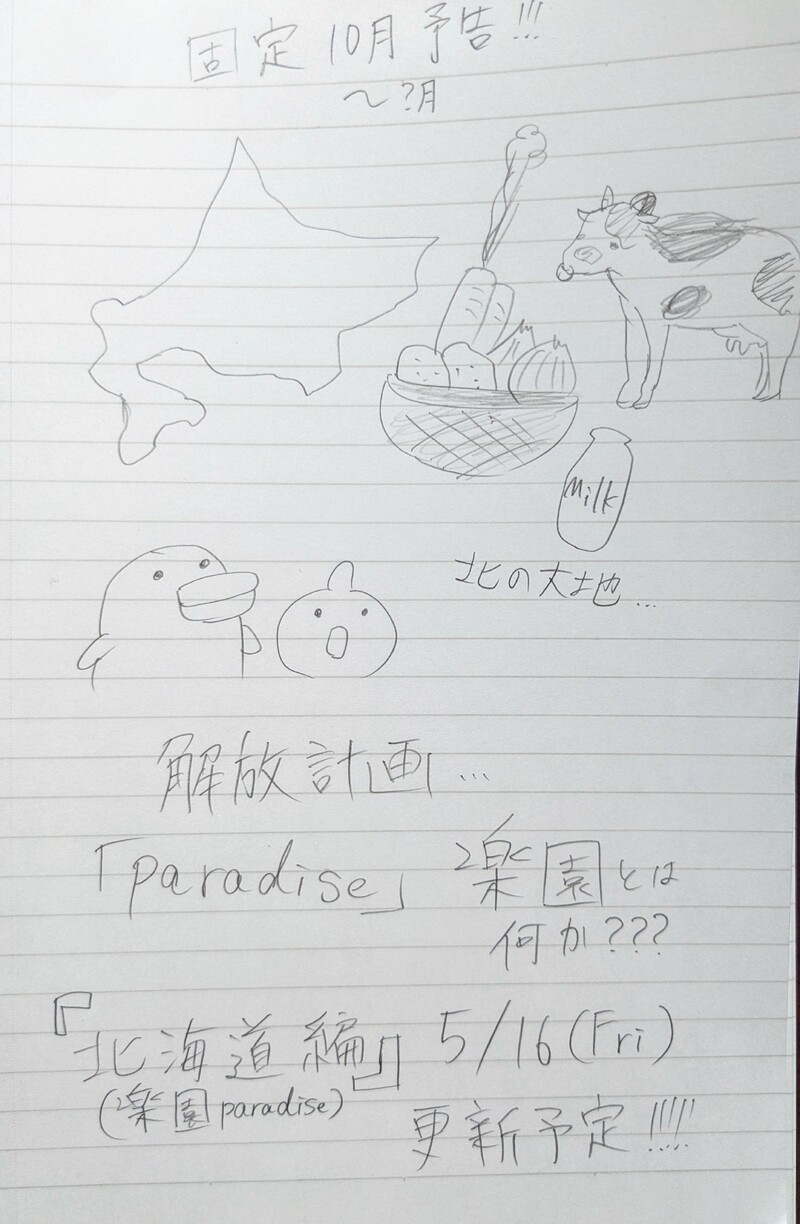 固定10月予告!!!
～?月
Milk
北の大地...
解放計画...
「paradise」楽園とは
何か???
『北海道編』5/16(Fri)
(楽園paradise)
更新予定!!!!!